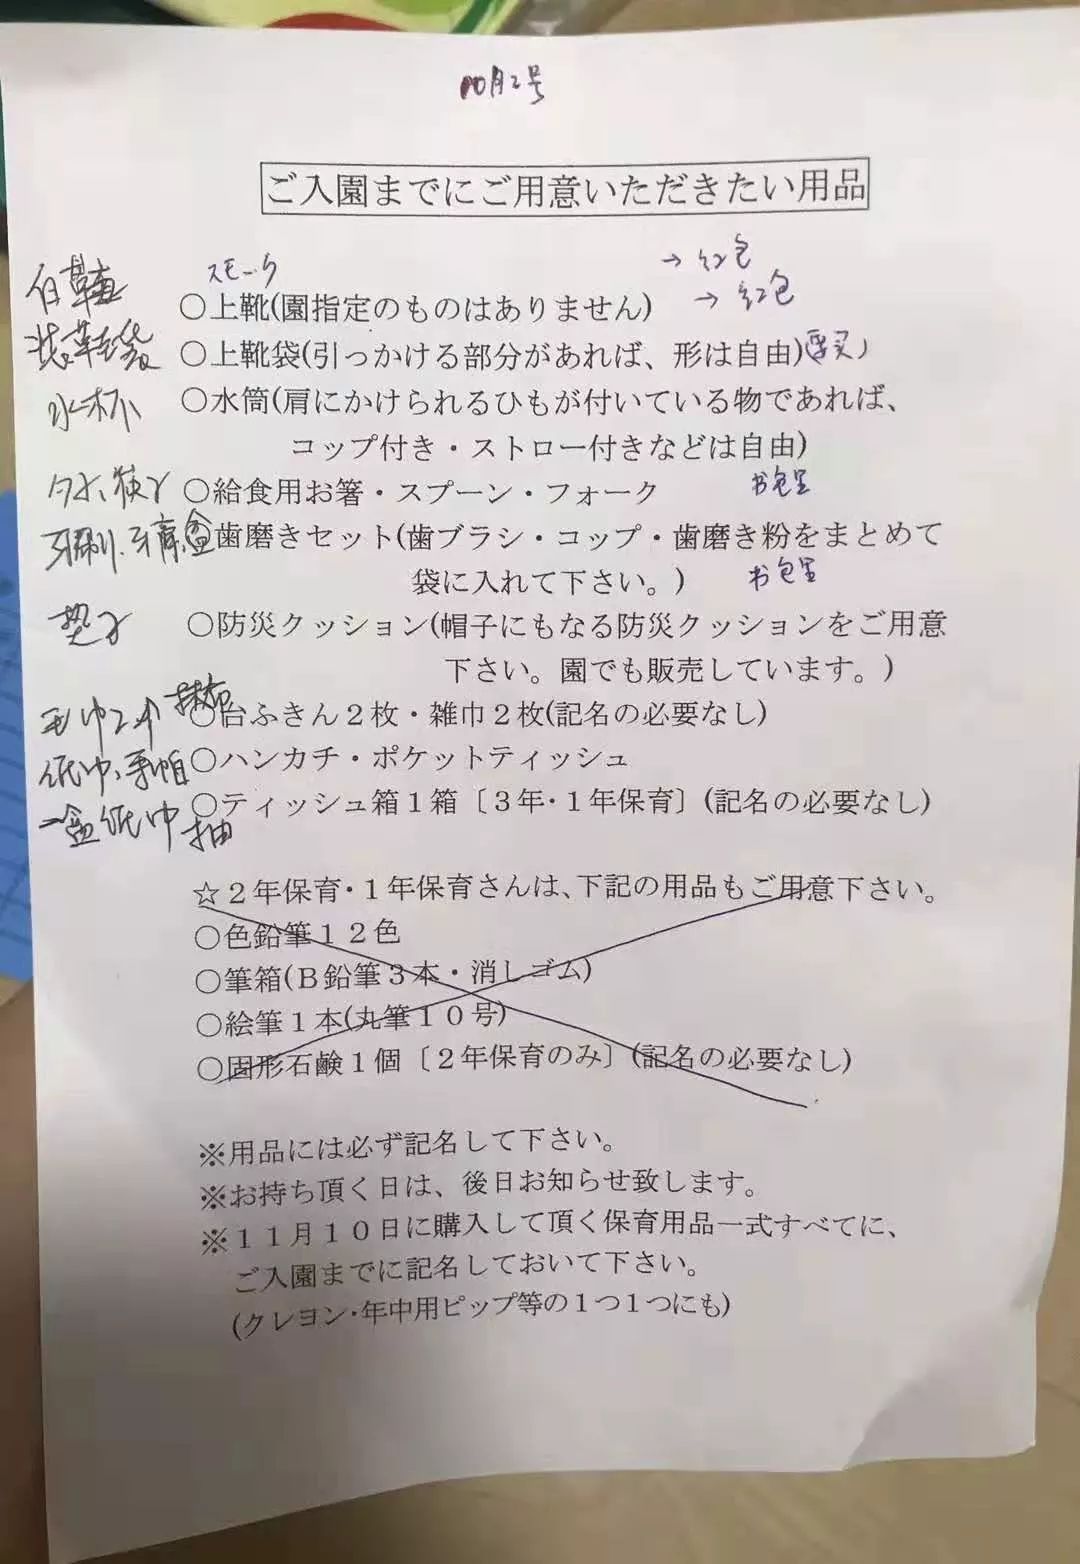 10月2号
ご入園までにご用意いただきたい用品
スモック → 红包
白鞋 ○上靴(園指定のものはありません) → 红包
装鞋袋 ○上靴袋(引っかける部分があれば、形は自由)(要买)
水杯 ○水筒(肩にかけられるひもが付いている物であれば、
コップ付き・ストロー付きなどは自由)
筷子 ○給食用お箸・スプーン・フォーク 书包里
牙刷、牙膏、盒 歯磨きセット(歯ブラシ・コップ・歯磨き粉をまとめて
袋に入れて下さい。) 书包里
垫子 ○防災クッション(帽子にもなる防災クッションをご用意
下さい。園でも販売しています。)
毛巾2个 抹布 ○台ふきん2枚・雑巾2枚(記名の必要なし)
纸巾、手帕 ○ハンカチ・ポケットティッシュ
一盒纸巾抽 ○ティッシュ箱1箱〔3年・1年保育〕(記名の必要なし)
☆2年保育・1年保育さんは、下記の用品もご用意下さい。
○色鉛筆12色
○筆箱(B鉛筆3本・消しゴム)
○絵筆1本(丸筆10号)
○固形石鹸1個〔2年保育のみ〕(記名の必要なし)
※用品には必ず記名して下さい。
※お持ち頂く日は、後日お知らせ致します。
※11月10日に購入して頂く保育用品一式すべてに、
ご入園までに記名しておいて下さい。
(クレヨン・年中用ピップ等の1つ1つにも)